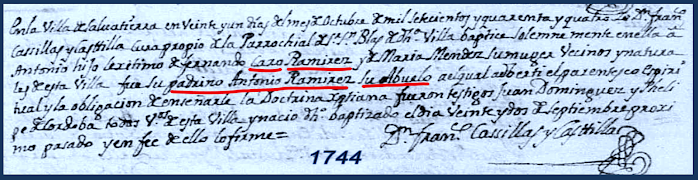 En la Villa de Salvatierra en Veinte y un dias del mes de Octubre de mil setecientos y quarenta y quatro Yo Dn. Franco.
Cassillas y Castilla Cura propio de la Parrochial de Sr. Sn. Blas de dha. Villa baptice solemnemente en ella à
Antonio hijo lexitimo de Fernando Caro Ramirez y de Maria Mendez su muger Vecinos y natura
les de esta Villa fue su padrino Antonio Ramirez su Abuelo al qual adverti el parentesco Espiri
tual y la obligacion de enseñarle la Doctrina Xptiana fueron testigos Juan Dominguez y Pheli
pe de Cordoba todos Vos. de esta Villa y nacio dho. baptizado el dia Veinte y dos de septiembre proxi
mo pasado y en fee de ello lo firme=
Dn. Franco. Cassillas y Castilla
1744